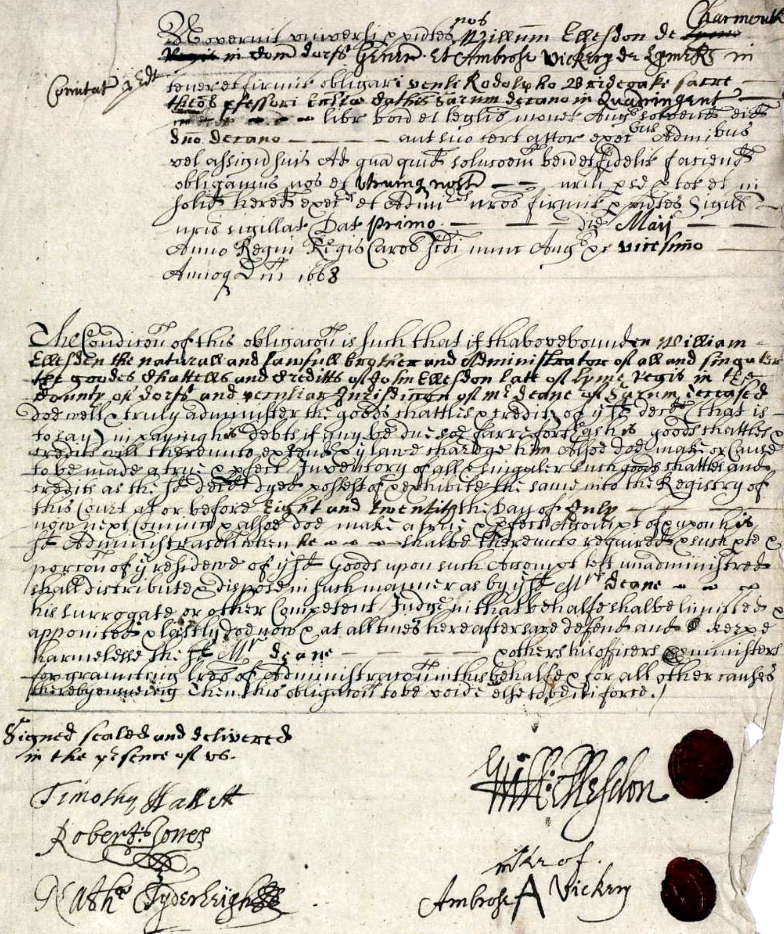 Charmouth
Noverint universi p pntes nos Willum Ellesdon de Lyme
Regis in Com Dorst Gener Et Ambrose Vickery de Lyme Rs in
Comitat p Edt
teneri et firmit obligari venli Rodolpho Bridecake sacre
theos pfessori Ecclie Cathis Sarum decano in Quadringent
libr bon et leglis monet Angl solvend eid
dno decano aut suo cert attor execut Admibus
vel assign suis Ad quam quid soluconem bene et fidelit faciend
obligamus nos et utrumq nostr p se p tot et in
solid hered exec et Admi nros firmit p pntes Sigill
nris sigillat Dat primo die Maij
Anno Regni Regis Caroli Scdi nunc Angl &c vicesimo
Annoq Dni 1668
The Condicon of this obligacon is such that if thabovebounden William
Ellesden the naturall and lawfull brother and Administrator of all and singuler
the goodes Chattells and Creditts of John Ellesdon late of Lyme Regis in the
County of Dorst and peculiar Jurisdiccon of mr deane of Sarum deceased
doe well & truly administer the goods chattles & credits of ye sd decd (that is
to say) in paying his debts if any be due soe farre forth as his goods chattles &
credits will thereunto extend & ye lawe chardge him Alsoe doe make or Cause
to be made a true & pfect Inventory of all & singuler such goods chattles and
credits as the sd decd dyed possest of & exhibite the same into the Registry of
this Court at or before Eight and twentith the day of July
now next coming & alsoe doe make a true & pfect Accompt of & upon his
sd Administracon when he shalbe thereunto required & such pte &
porcon of ye residewe of ye sd Goods upon such Accompt left unadministred
shall distribute & dispose in such manner as by ye sd Mr deane
his surrogate or other Competent Judge in that behalfe shalbe limited &
appointed & lastly doe now & at all times hereafter save defend and keepe
harmelesse the sd Mr deane & others his officers & ministers
for graunting lres of Administracon in this behalfe & for all other causes
thereby ensueing Then this obligacon to be voide else to bide in force.
Signed sealed and delivered
in the psence of us.
Timothy Hallett
Robert Jones
Nath Tyderleigh
Will: Ellesdon
mke of
Ambrose A Vickery